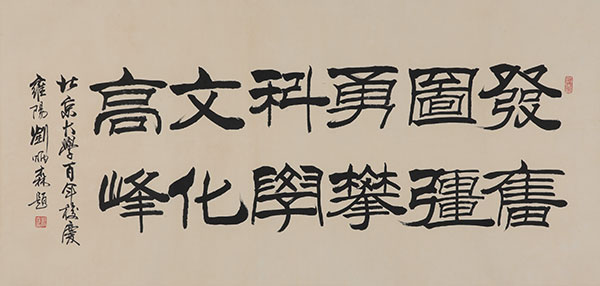 發奮
圖彊
勇攀
科學
文化
高峰
北京大學百年校慶
雍陽劉炳森題